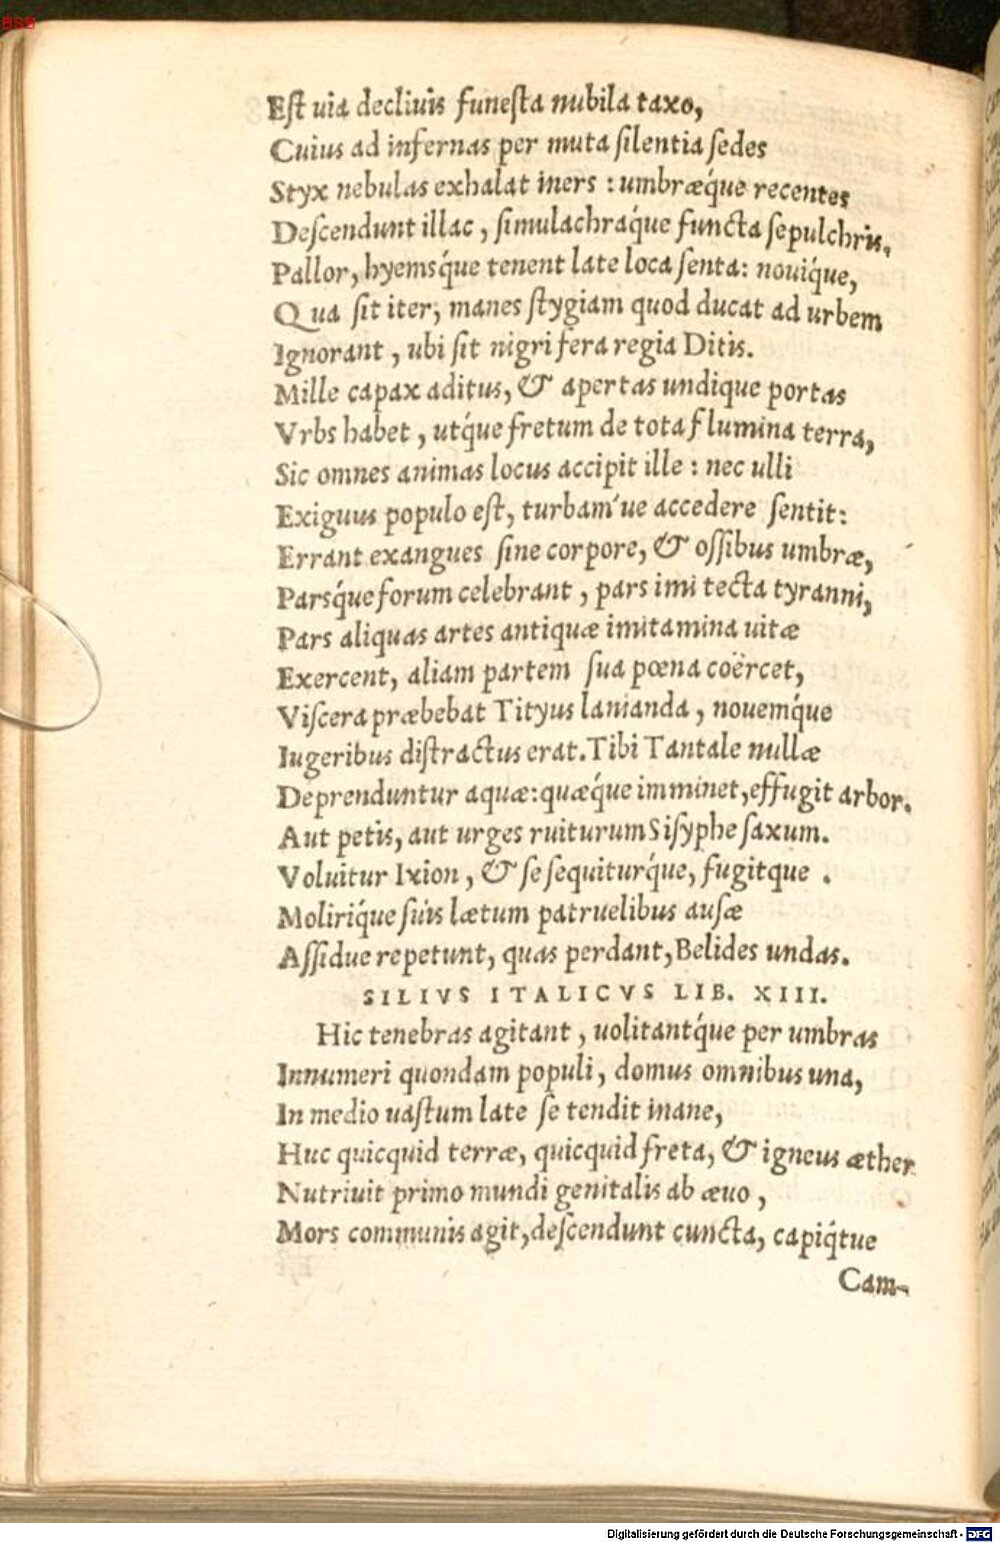 BSB
Eſt uia decliuis funeſta nubila taxo,
Cuius ad infernas per muta ſilentia ſedes
Styx nebulas exhalat iners : umbræq́ue recentes
Deſcendunt illac, ſimulachraq́ue functa ſepulchris.
Pallor, hyemsq́ue tenent late loca ſenta: nouiq́ue,
Qua ſit iter, manes ſtygiam quod ducat ad urbem
Ignorant, ubi ſit nigri fera regia Ditis.
Mille capax aditus, & apertas undique portas
Vrbs habet, utq́ue fretum de tota flumina terra,
Sic omnes animas locus accipit ille : nec ulli
Exiguus populo eſt, turbam´ue accedere ſentit:
Errant exangues ſine corpore, & oſſibus umbræ,
Parsq́ue forum celebrant, pars imi tecta tyranni,
Pars aliquas artes antiquæ imitamina uitæ
Exercent, aliam partem ſua pœna coërcet,
Viſcera præbebat Tityus lanianda, nouemq́ue
Iugeribus diſtractus erat. Tibi Tantale nullæ
Deprenduntur aquæ: quæq́ue imminet, effugit arbor.
Aut petis, aut urges ruiturum Siſyphe ſaxum.
Voluitur Ixion, & ſe ſequiturq́ue, fugitque .
Moliriq́ue ſuis lætum patruelibus auſæ
Aſſidue repetunt, quas perdant, Belides undas.
SILIVS ITALICVS LIB. XIII.
Hic tenebras agitant, uolitantq́ue per umbras
Innumeri quondam populi, domus omnibus una,
In medio uaſtum late ſe tendit inane,
Huc quicquid terræ, quicquid freta, & igneus æther
Nutriuit primo mundi genitalis ab æuo,
Mors communis agit, deſcendunt cuncta, capiq́tue
Cam-
Digitalisierung gefördert durch die Deutsche Forschungsgemeinschaft - DFG